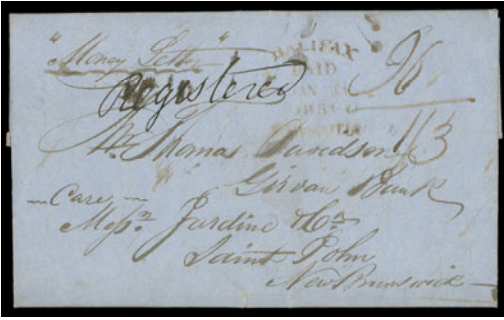 "Money Letter"
Registered
HALIFAX
PAID
Mr Thomas Davidson
Girvan Bank
Care
Messrs Jardine & Co
Saint John
New Brunswick